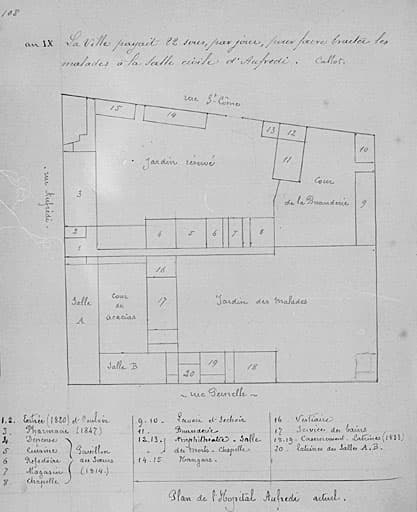 108
an IX La Ville payait 22 sous, par jour, pour faire traiter les
malades à la Salle civile d'Aufredi. Callot.
rue St Côme
15
14
13
12
10
Jardin réservé
11
Cour
de la Buanderie
rue Aufredi
3
9
2
4
5
6
7
8
1
16
Salle
A
Cour
des
acacias
17
Jardin des Malades
Salle B
20
19
18
rue Gerville
1.2. Entrée (1820) et
3. Pharmacie (1847)
4 Dépense
5 Cuisine
6 Réfectoire
7 Magasin
8 Chapelle
Pavillon
des Sœurs
(1814.)
9-10- Lavoir et Séchoir
11 Buanderie
12.13. Amphithéâtre - Salle
des Morts - Chapelle
14.15 Hangars
16 Vestiaire
17 Services des bains
18.19 Latrines
20 Latrines des Salles A.B.
Plan de l'Hôpital Aufredi actuel.